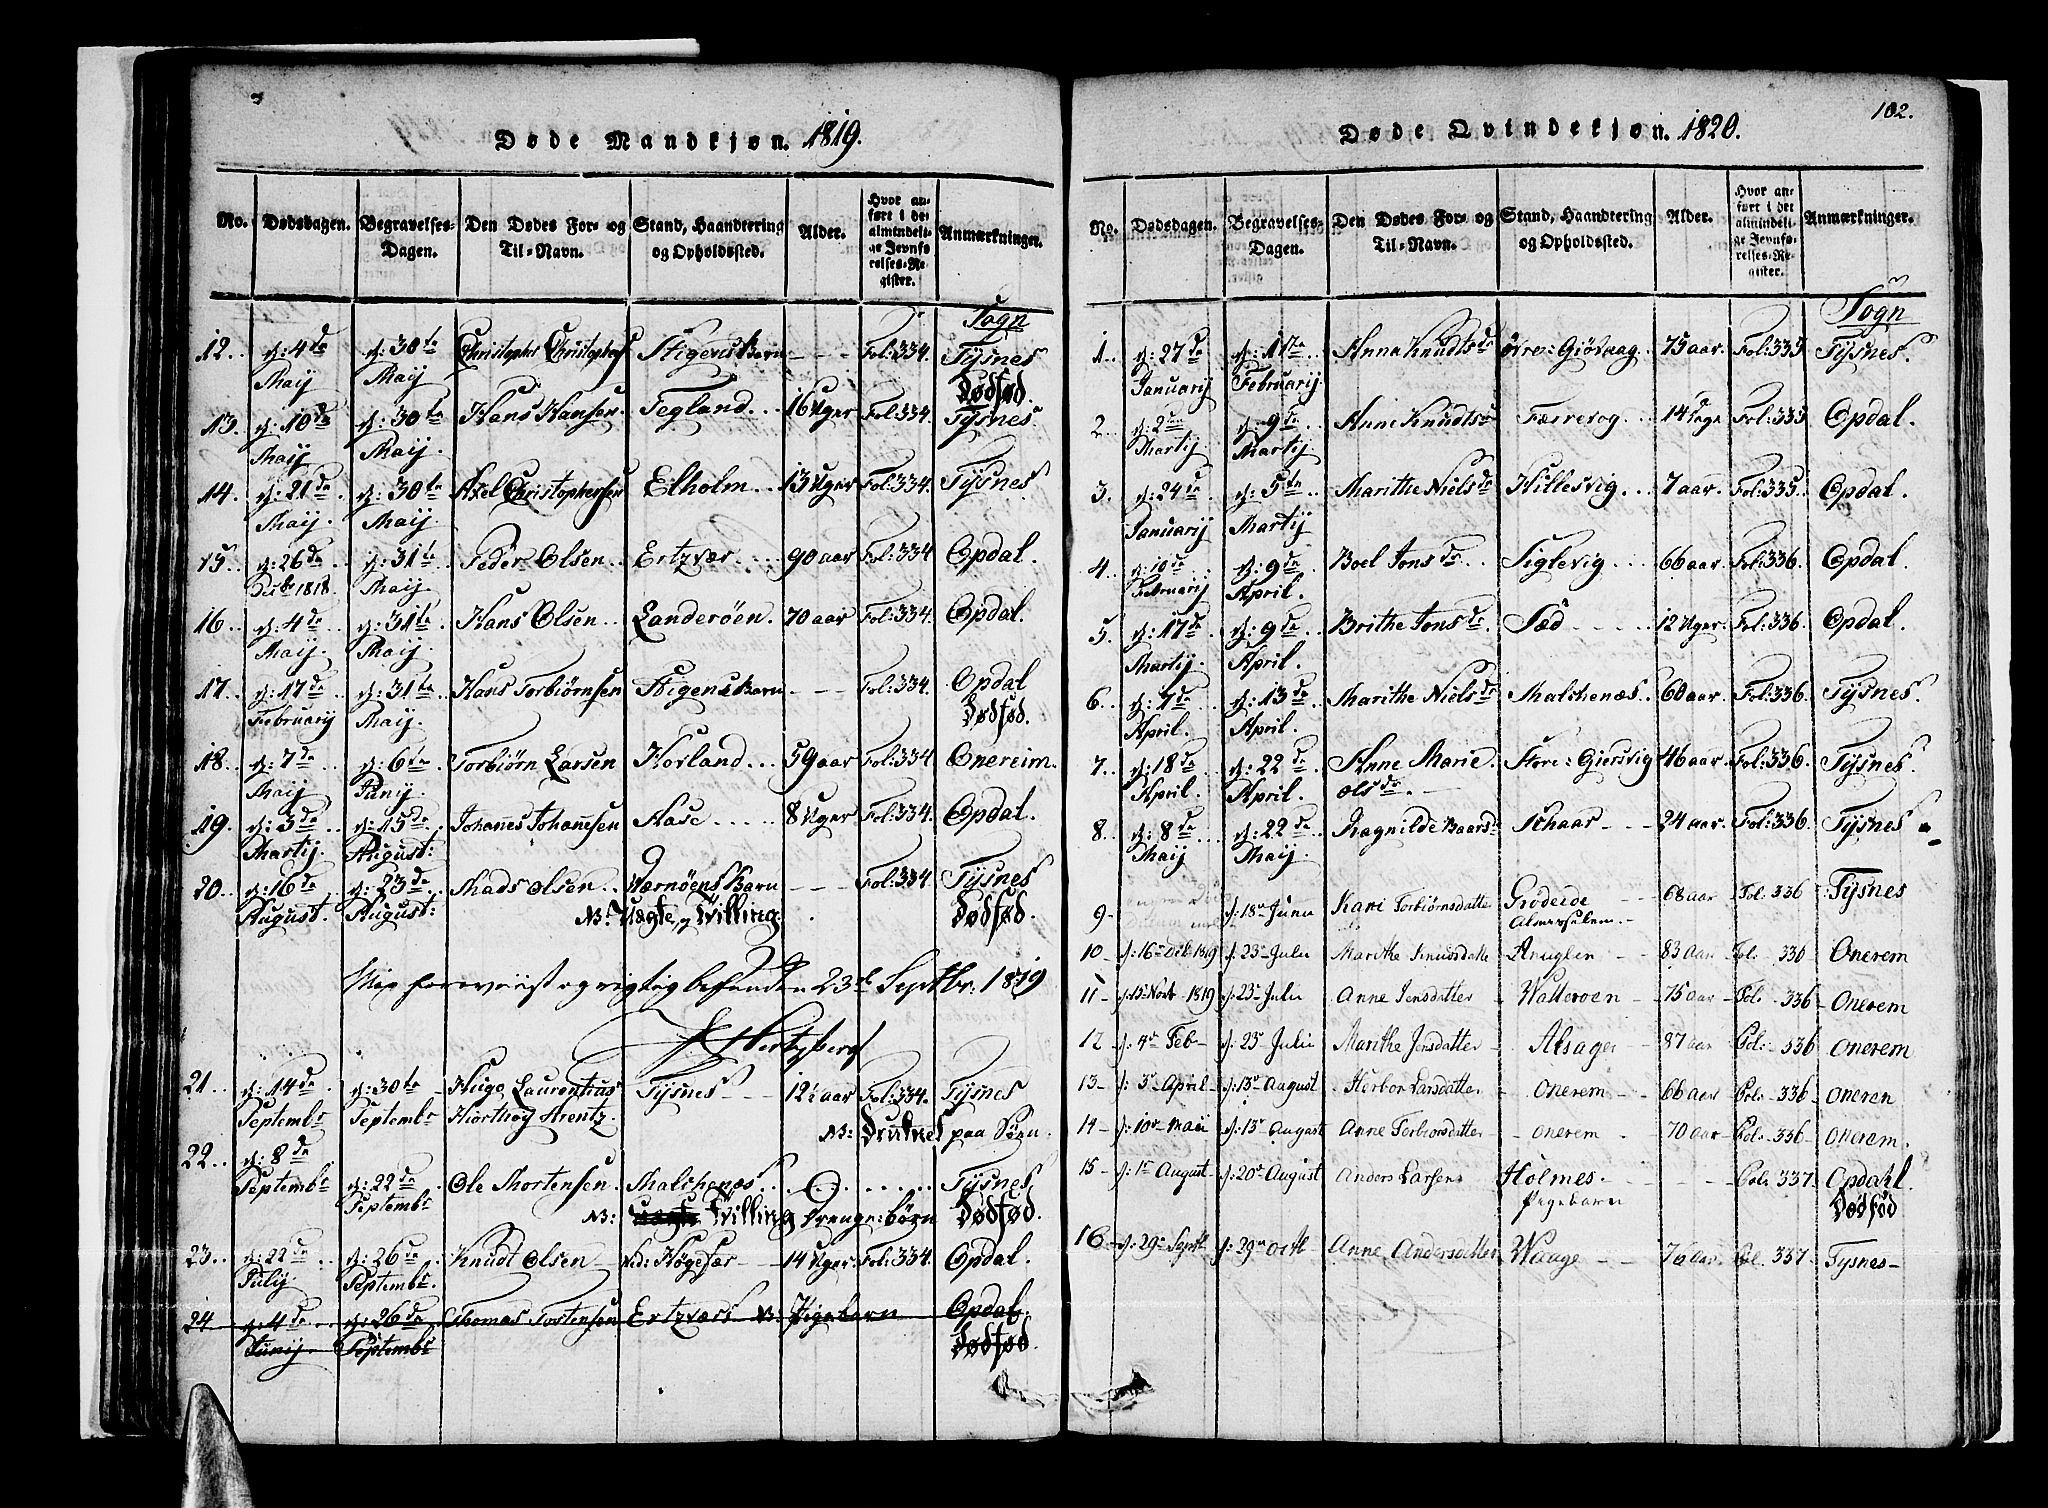 Døde Mandkjøn. 1819.
No. Dødsdagen. Begravelses-Dagen. Den Dødes For- og Til-Navn. Stand, Haandtering og Opholdssted. Alder. Hvor anført i det almindelige Jevnførelses-Register. Anmærkninger.
Sogn
12. d: 4de d: 30te Christopher Christophers Stigens Barn - - - Fol: 334. Tysnes
Maij Maij Dødfød.
13. d: 10de d: 30te Hans Hansen. Tegland. 16 Uger Fol: 334. Tysnes
Maij Maij.
14. d: 21de d: 30te Axel Christophersen Elholm. 13 Uger Fol: 334. Tysnes
Maij. Maij.
15. d: 26de d: 31te Peder Olsen Ertzvær. 90 aar Fol: 334. Opdal.
Decbr 1818. Maij.
16. d: 4de d: 31te Hans Olsen Landerøen. 70 aar Fol: 334. Opdal.
Maij. Maij.
17. d: 17de d: 31te Hans Torbiørnsen Stigens Barn - - - Fol: 334. Opdal
Februarij Maij. Dødfød.
18. d: 7de d: 6te Torbiørn Larsen Horland. 59 aar Fol: 334 Onereim.
Maij Junij.
19. d: 3de d: 15de Johannes Johannesen Aase 8 Uger. Fol: 334. Opdal.
Martij. August:
20. d: 16de d: 23de Mads Olsen. Værnøens Barn - - - Fol: 334 Tysnes
August. August: NB: Uægte, og Tvilling Dødfød.
23de Septbr: 1819
Hertzberg
21. d: 14de d: 30te Hugo Laurentius Tysnes - - 12½ aar Fol: 334. Tysnes
Septembr Septembr Hiorthøy Arentz. NB: Druknet paa Søen.
22. d: 8de
Septembr d: 22de Ole Mortensen. Malchenæs Tysnes
Septembr NB: Tvilling Drenge: børn Dødfød.
23. d: 22de d: 26de Knudt Olsen Ned: Høgesær 14 Uger. Fol: 334. Opdal.
Julij Septembr
24 d: 4de d: 26de Thomas Tostensen Ertzvær NB: Pigebarn Opdal.
Junij Septembr Dødfød.
102.
Døde Qvindekjøn. 1820.
No. Dødsdagen. Begravelses-Dagen. Den Dødes For- og Til-Navn. Stand, Haandtering og Opholdssted. Alder. Hvor anført i det almindelige Jevnførelses-Register. Anmærkninger.
Sogn
1. d: 27de d: 1ste Anna Knudtsdr Øvre: Giøvaag. 75 aar. Fol: 335 Tysnes.
Januarij Februarij.
2. d: 2den d: 9de Anne Knudtsdr Færrevog. 14 Dage Fol: 335 Opdal.
Martij Martij
3. d: 24de d: 5te Marithe Nielsdr Hillesvig. 7 aar. Fol: 335. Opdal.
Januarij Martij
4. d: 10de d: 9de Boel Jonsdr. Siglevig. 66 aar. Fol: 336. Opdal.
Februarij April.
5. d: 17de d: 9de Brithe Jonsdr. Sæd 12 Uger. Fol: 336. Opdal.
Martij. April.
6. d: 7de d: 13de Marithe Nielsdr Malchenæs. 60 aar. Fol: 336. Tysnes
April. April.
7. d: 18de d: 22de Anne Marie. Store: Giersvig 46 aar. Fol: 336. Tysnes.
April. April. Olsdr.
8. d: 8de d: 22de Ragnilde Baarsdr Schaar - - - 24 aar. Fol: 336. Tysnes
Maij Maij.
9 d: 18de Juni Kari Torbiørnsdatter Grødeide 68 aar Fol. 336 Tysnes
10 - d: 16de Dcb 1819 d: 23de Juli Marithe Knudsdatter Anuglen - 83 aar Fol. 336 Onerem
11 - d: 15de Novbr 1819 d: 23de Juli Anne Jensdatter - Watteroen - 75 aar Fol. 336 - Onerem
12 d: 4de Feb - d: 23de Julii Marithe Jensdatter Alsager 87 aar Fol. 336 Onerem
13 - d: 3de April - d: 13de August Herbor Larsdatter Onerem 66 aar Fol. 336 Oneren
14 - d: 10de Maii d: 13de August Anne Torbiorsdatter - Onerem - 70 aar Fol. 336 - Onerem.
15 - d: 1ste August d: 20de August Anders Larsens Holmes. Fol. 337 - Opdahl.
Pigebarn Dødfød
16 - d: 29de Septb d: 29de Octb Anne Andersdatter Waage - - 76 aar. Fol. 337. Tysnes -